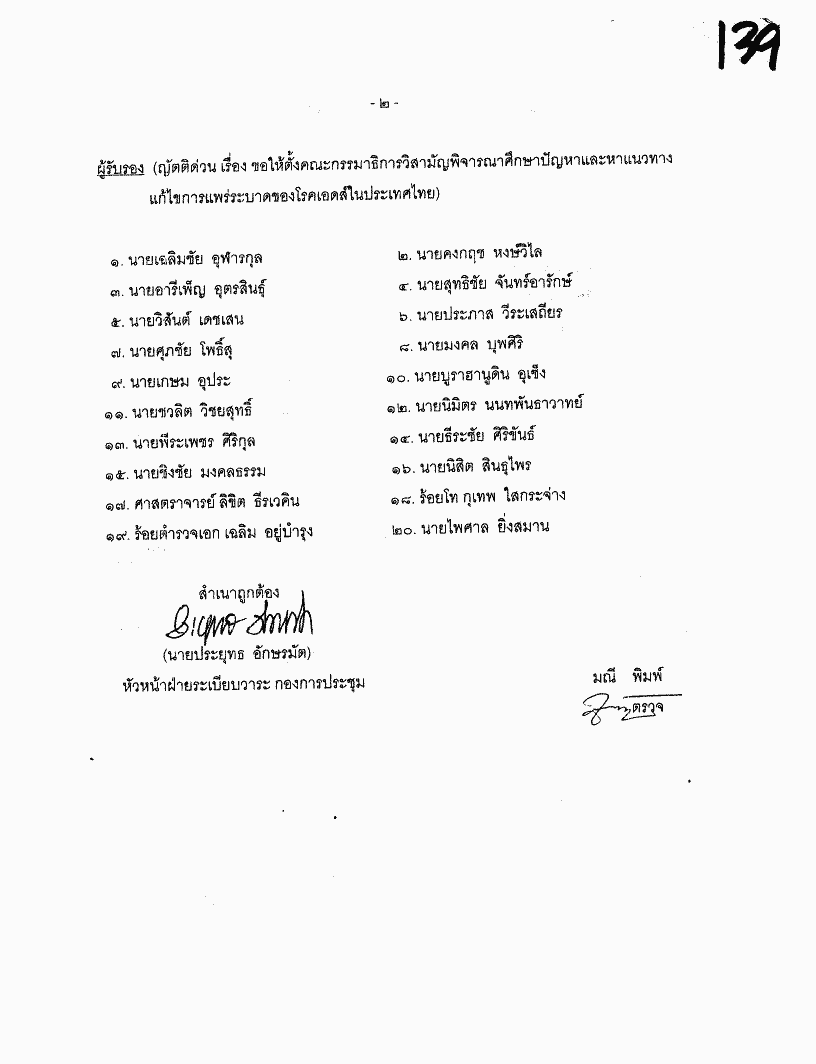 139
- ๒ -
ผู้รับรอง (ญัตติด่วน เรื่อง ขอให้ตั้งคณะกรรมาธิการวิสามัญพิจารณาศึกษาปัญหาและหาแนวทาง
แก้ไขการแพร่ระบาดของโรคเอดส์ในประเทศไทย)
๑. นายเฉลิมชัย อุฬารกุล ๒. นายคงกฤช หงษ์วิไล
๓. นายอารีเพ็ญ อุตรสินธุ์ ๔. นายสุทธิชัย จันทร์อารักษ์
๕. นายวิสันต์ เดชเสน ๖. นายประภาส วีระเสถียร
๗. นายศุภชัย โพธิ์สุ ๘. นายมงคล บุพศิริ
๙. นายเกษม อุประ ๑๐. นายบูราฮานูดิน อุเซ็ง
๑๑. นายชวลิต วิชยสุทธิ์ ๑๒. นายนิมิตร นนทพันธาวาทย์
๑๓. นายพีระเพชร ศิริกุล ๑๔. นายธีระชัย ศิริขันธ์
๑๕. นายขิงชัย มงคลธรรม ๑๖. นายนิสิต สินธุไพร
๑๗. ศาสตราจารย์ ลิขิต ธีรเวคิน ๑๘. ร้อยโท กุเทพ ใสกระจ่าง
๑๙. ร้อยตำรวจเอก เฉลิม อยู่บำรุง ๒๐. นายไพศาล ยิ่งสมาน
สำเนาถูกต้อง
(นายประยุทธ อักษรมัต)
หัวหน้าฝ่ายระเบียบวาระ กองการประชุม
มณี พิมพ์
ตรวจ